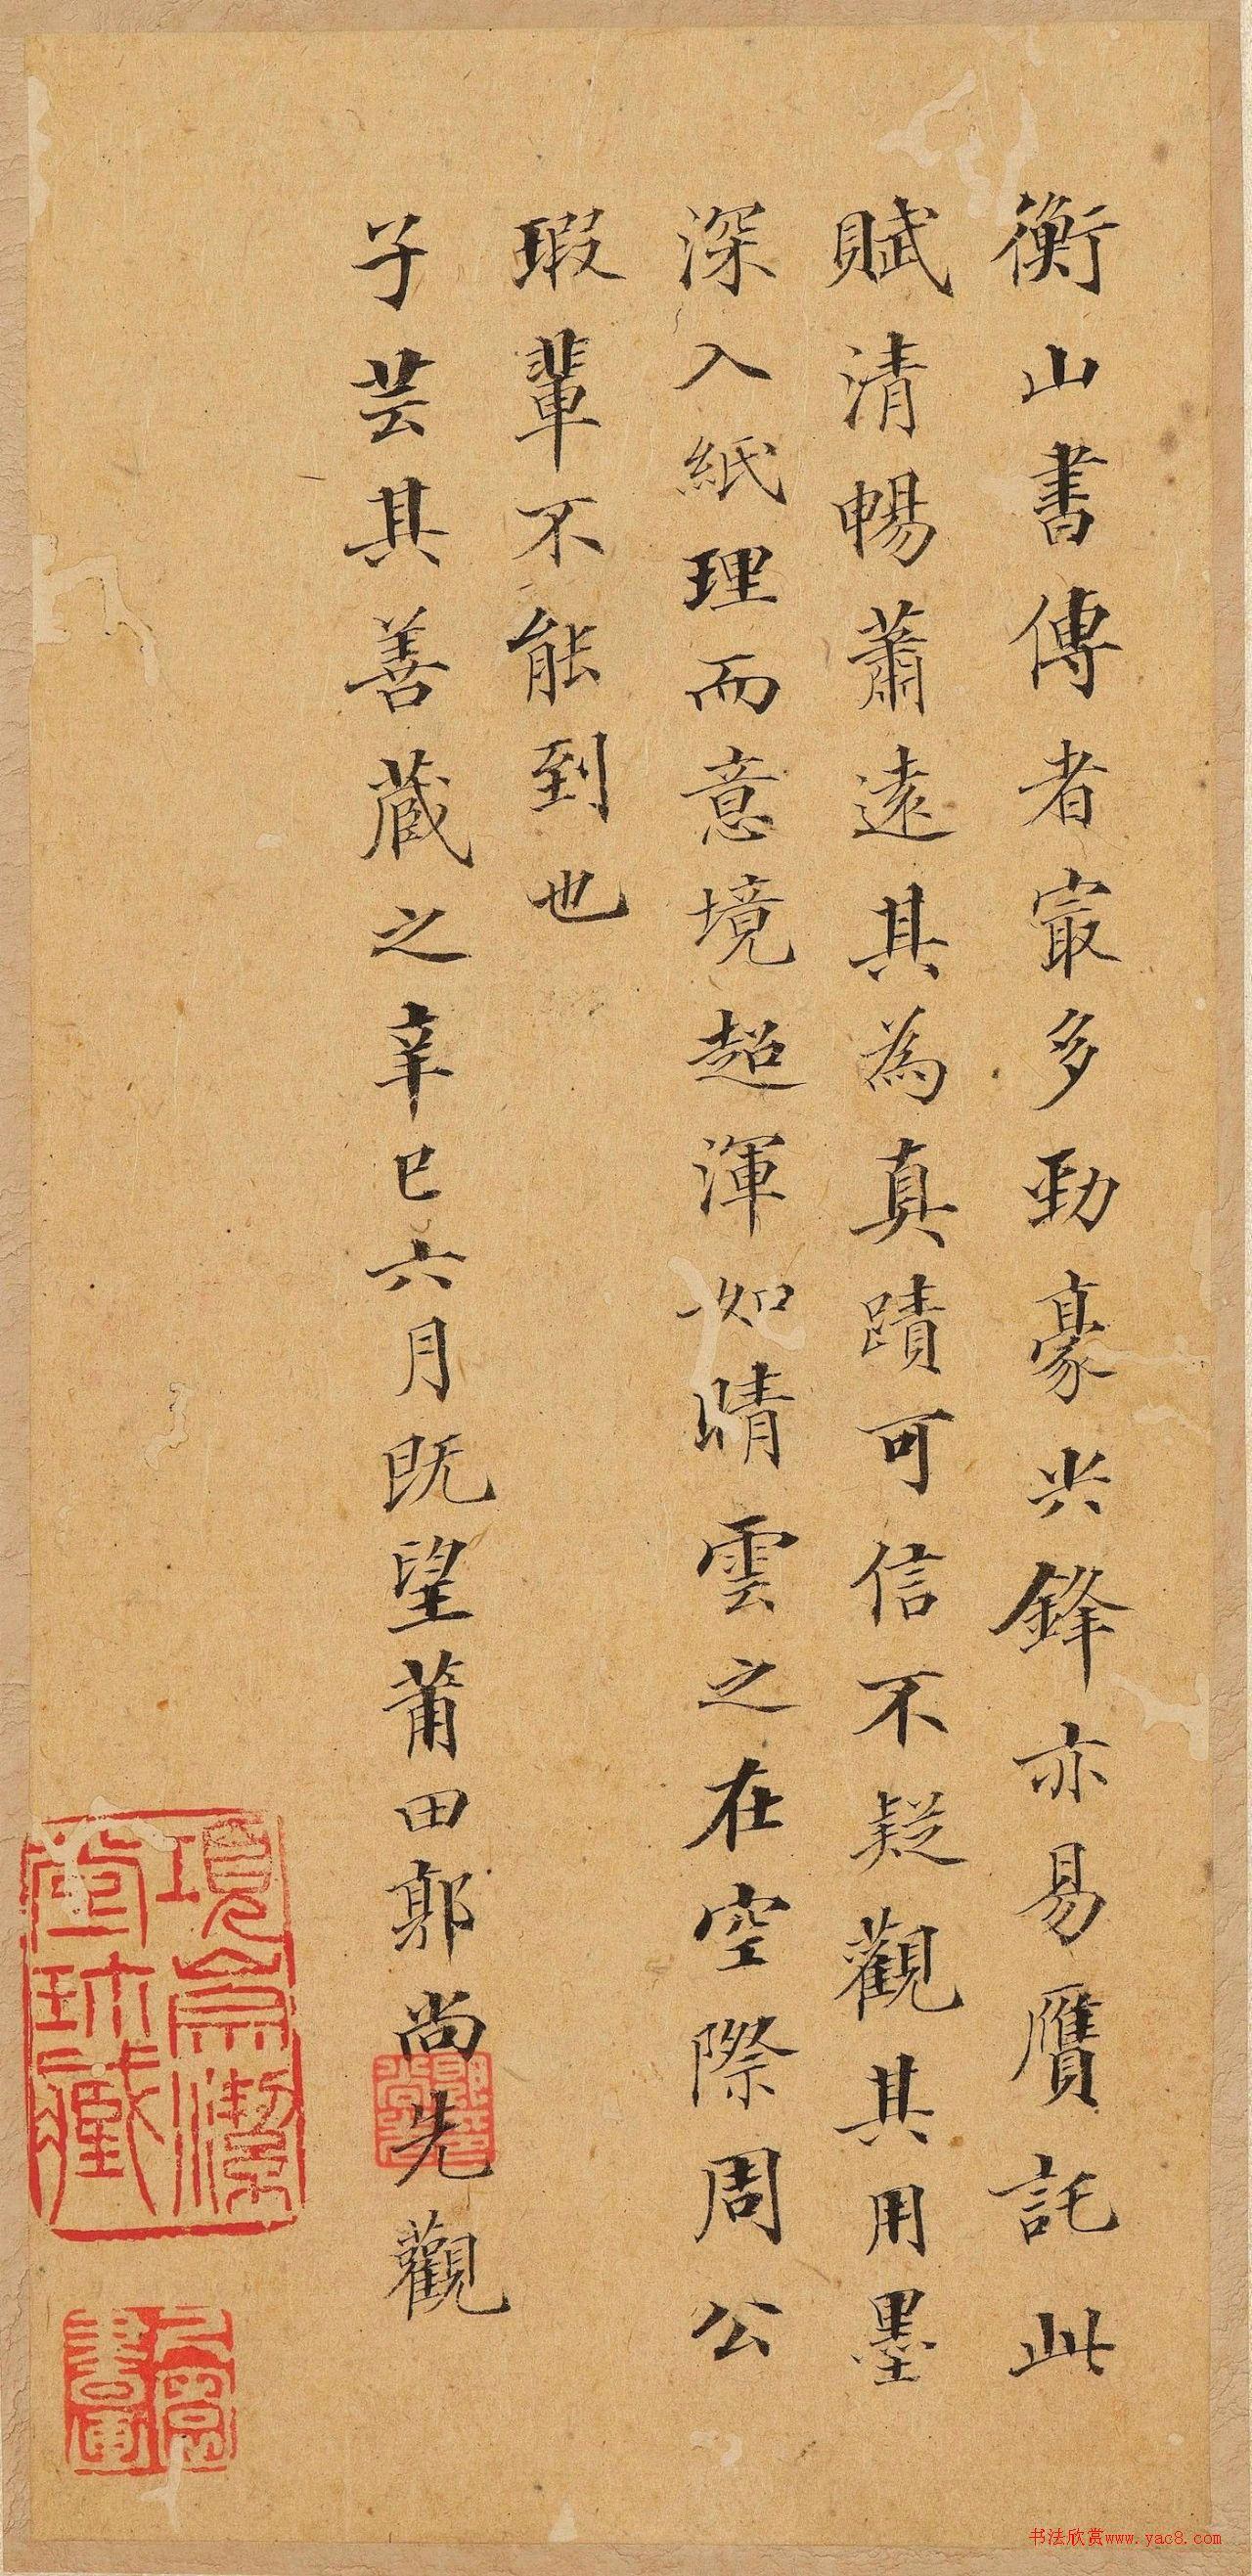 衡山書傳者㝡多勁豪尖鋒亦易贗託此
賦清暢蕭遠其為真蹟可信不疑觀其用墨
深入紙理而意境超渾如晴雲之在空際周公
瑕輩不能到也
子芸其善藏之辛巳六月既望莆田郭尚先觀
書法欣赏www.yac8.com